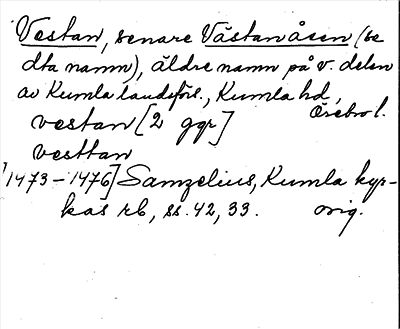 Vestan, senare Västanåsen (se
dta namn), äldre namn på v. delen
av Kumla landsförs., Kumla hd,
Örebro l.
vestan [2 ggr]
vesttan
[1473-1476] Samzelius, Kumla kyr-
kas rb, ss. 42, 33. orig.